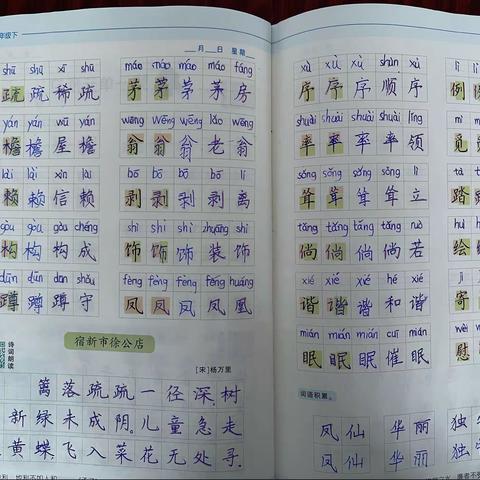 年级下
月 日 星期
shū shū xī shū
疏 疏 稀 疏
yán yán wū yán
檐 檐 屋 檐
lài lài xìn lài
赖 赖 信 赖
gòu gòu gòu chéng
构 构 构 成
dūn dūn dūn shǒu
蹲 蹲 蹲 守
máo máo máo máo fáng
茅 茅 茅 茅 房
wēng wēng wēng lǎo wēng
翁 翁 翁 老 翁
bō bō bō lí
剥 剥 剥 剥 离
shì shì shì zhuāng shì
饰 饰 饰 装 饰
fèng fèng fèng fèng huáng
凤 凤 凤 凤 凰
宿新市徐公店
诗词朗读
[宋]杨万里
篱落疏疏一径深,树
新绿未成阴。儿童急走
黄蝶,飞入菜花无处寻。
xù xù xù shùn xù
序 序 序 顺 序
shuài shuài shuài shuài lǐng
率 率 率 率 领
sǒng sǒng sǒng sǒng lì
耸 耸 耸 耸 立
tǎng tǎng tǎng tǎng ruò
倘 倘 倘 倘 若
xié xié xié hé xié
谐 谐 谐 和 谐
mián mián mián cuī mián
眠 眠 眠 催 眠
lì lì
例
yuán
员
tà
踏 踏
huì
绘 绘
jì
寄
wèi wèi
慰
词语积累。
凤仙 华丽 独
凤仙 华丽 独